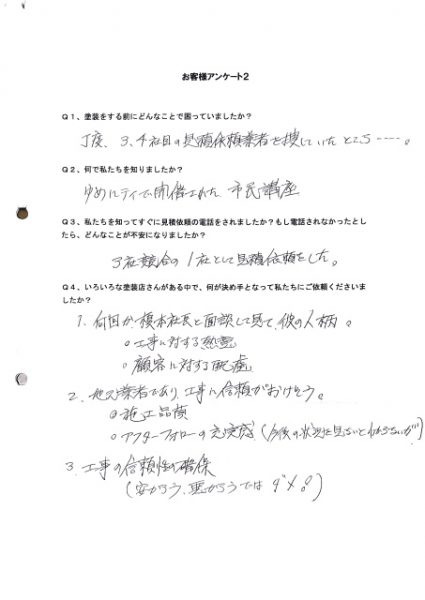 お客様アンケート2
Q1、塗装をする前にどんなことで困っていましたか?
丁度、3、4社目の見積依頼業者を捜していたところ……。
Q2、何で私たちを知りましたか?
ゆめニティで開催された市民講座
Q3、私たちを知ってすぐに見積依頼の電話をされましたか?もし電話されなかったとし
たら、どんなことが不安になりましたか?
3社競合の1社として見積依頼をした。
Q4、いろいろな塗装店さんがある中で、何が決め手となって私たちにご依頼くださいま
したか?
1. 何回か榎本社長と面談して見て、彼の人柄。
○工事に対する熱意
○顧客に対する配慮
2. 地元業者であり、工事に信頼がおけそう。
○施工品質
○アフターフォローの充実感(今後の状況を見ないとわからないが)
3. 工事の信頼性の確保
(安かろう、悪かろうではダメ!!)